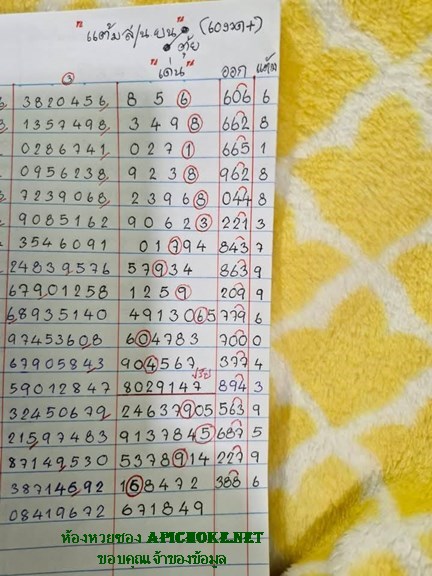 "แต้ม สี/น.บน" (เจองวด+)
ตุ้ย
③ "เด่น" ออก แต้ม
3820456 856 606 6
1357498 3498 662 8
0286741 0271 665 1
0956238 9238 962 8
7239068 23968 044 8
9085162 90623 221 3
3546091 01794 843 7
24839576 57934 863 9
67901258 1259 209 9
68935140 4913065 779 6
97453608 604783 700 0
67905843 904567 377 4
59012847 8029147 894 3
32450679 24637905 563 9
21597483 9137845 687 5
87149530 5378914 227 9
38714692 168472 388 6
08419672 671849
ห้องหวยซอง APICHOKE.NET
ขอบคุณเจ้าของข้อมูล